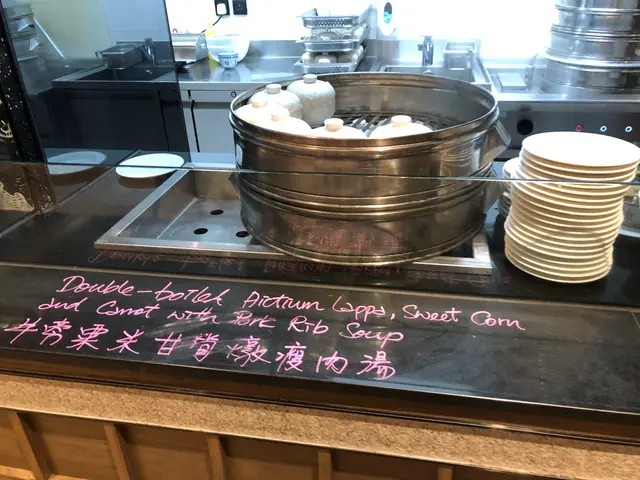 Double-boiled Arctium Lappa, Sweet Corn
and Carrot with Pork Rib Soup
牛旁粟米甘筍燉瘦肉湯